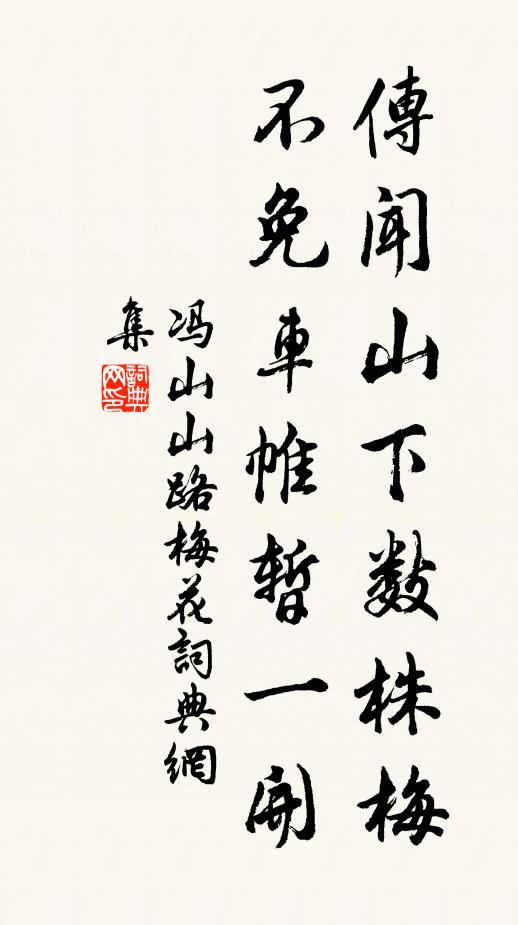 傳聞山下数株梅
不免車帷暫一開
冯山山路梅花詞典網
集
詞典
网印